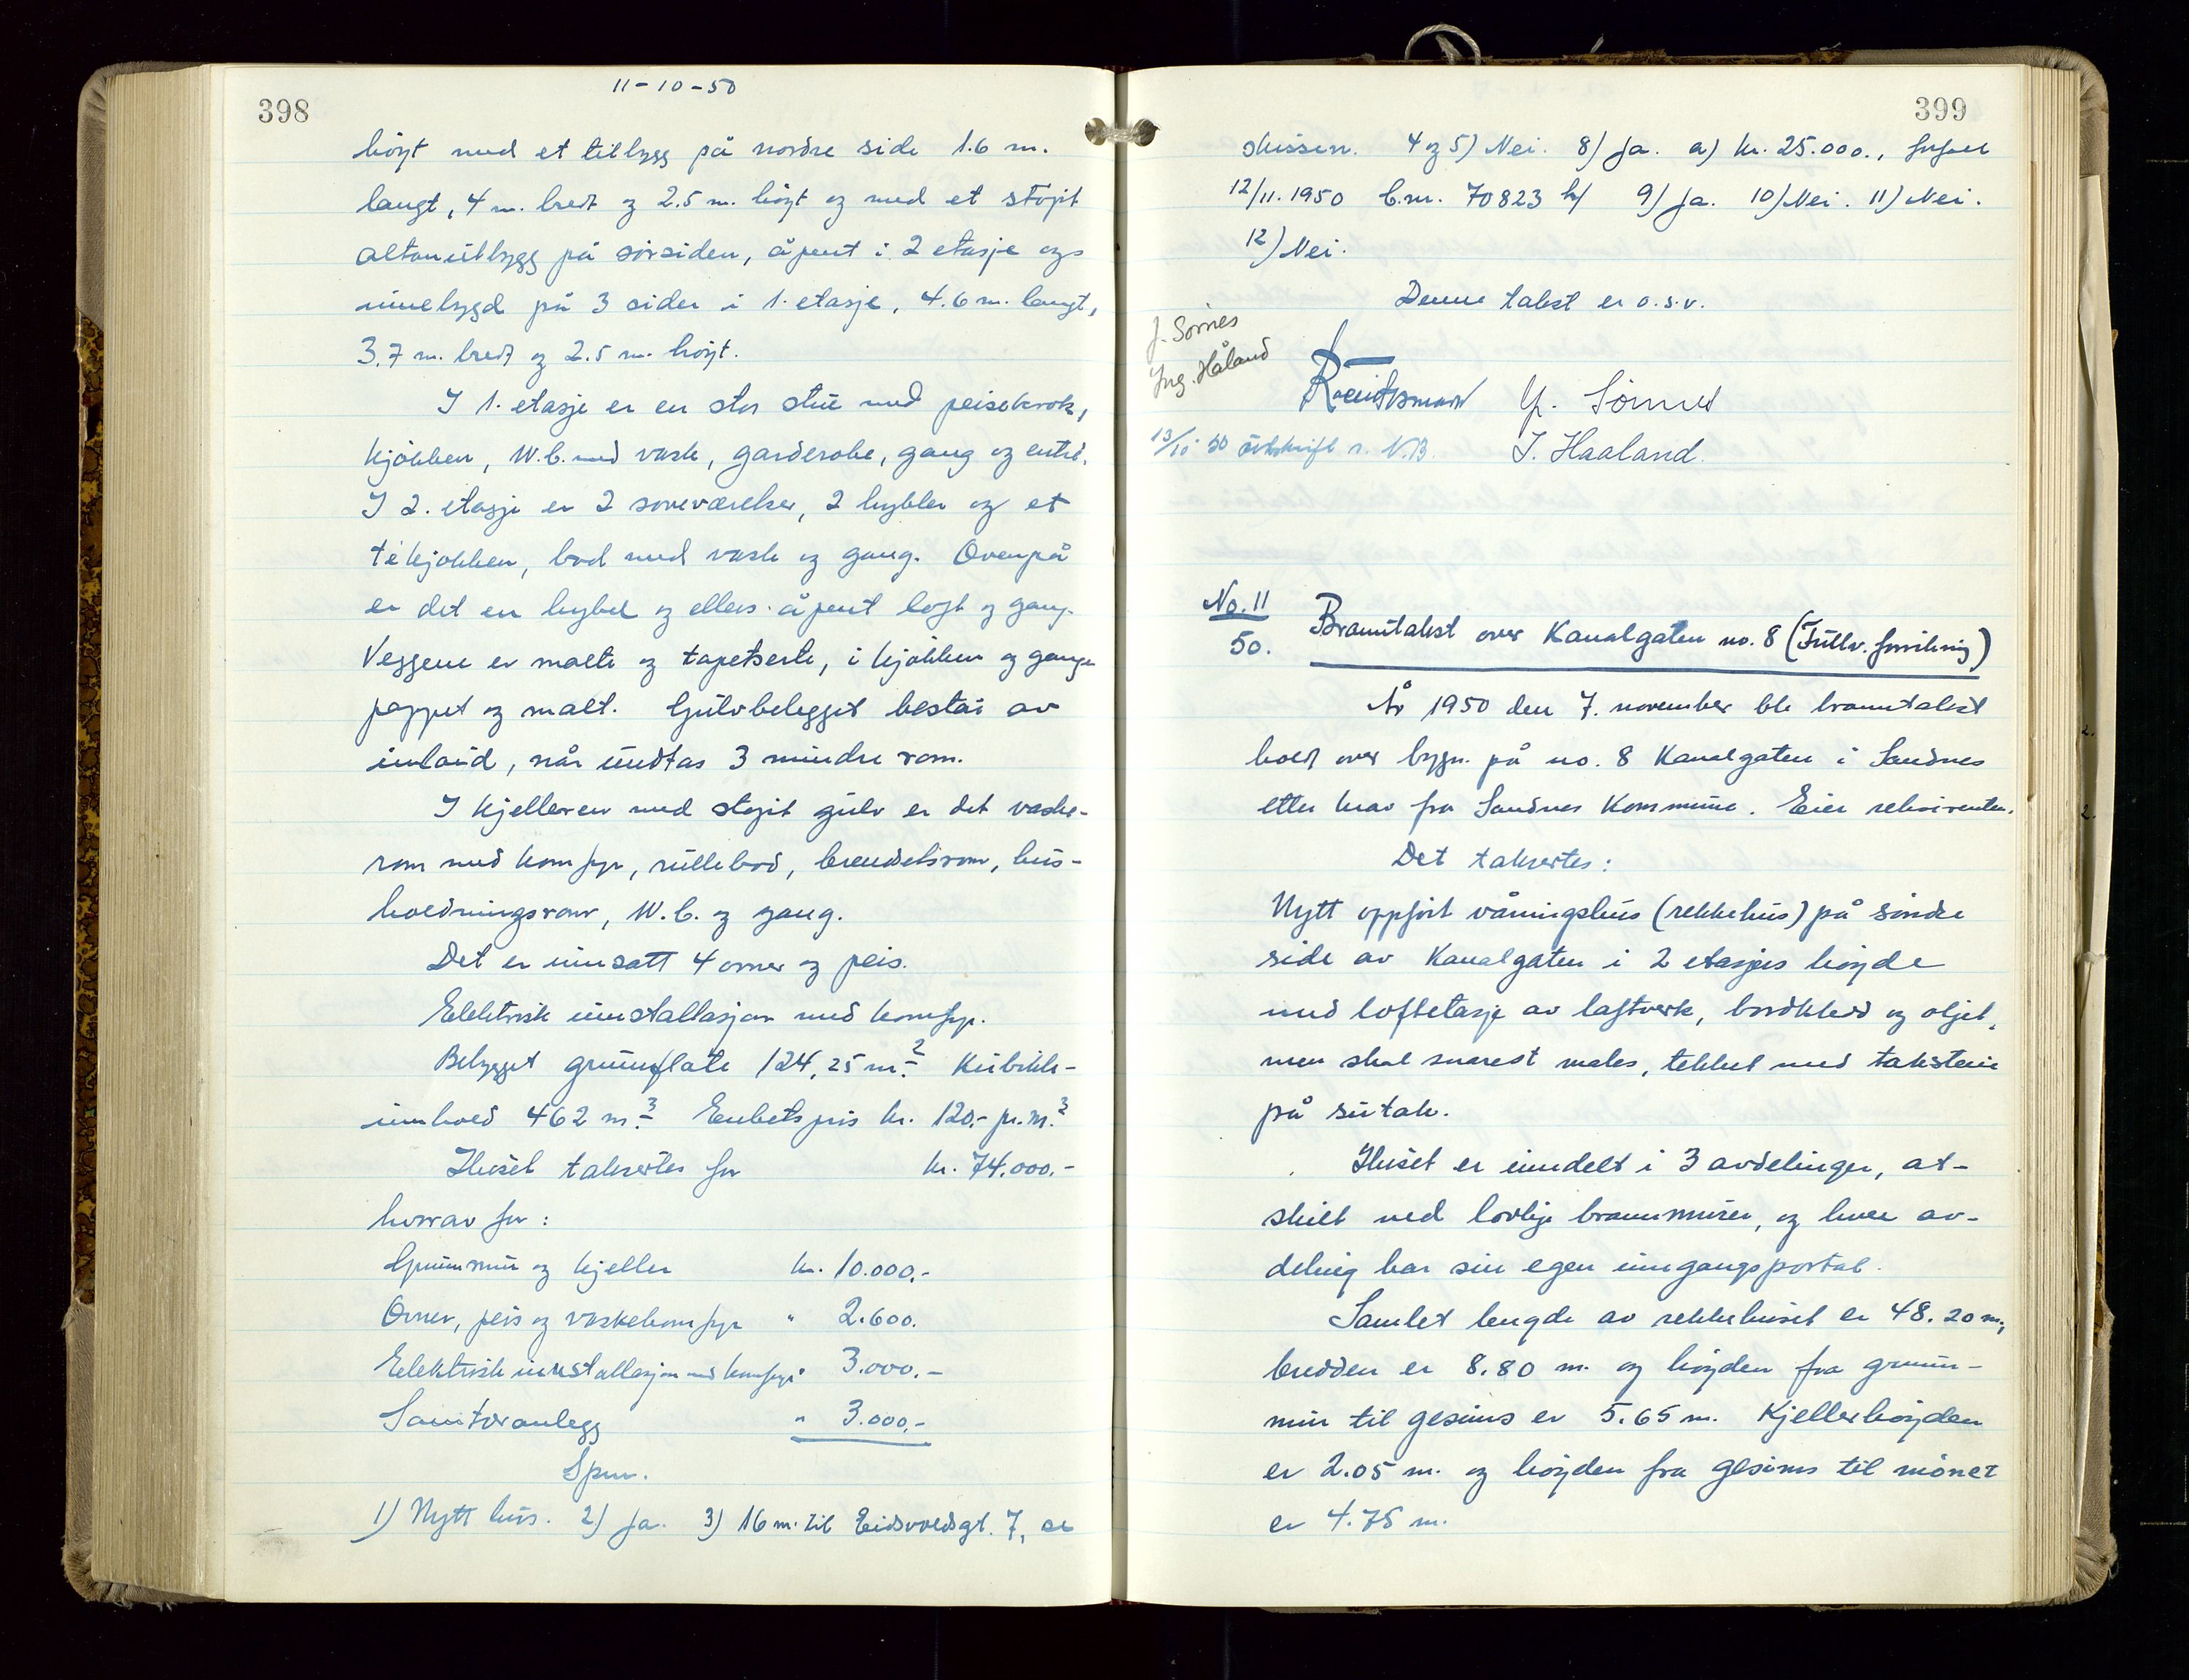 11-10-50
398
høyt med et tilbygg på nordre side 1.6 m.
langt, 4 m. bredt og 2.5 m. høyt og med et støpt
altanutbygg på sørsiden, åpent i 2 etasje og
innebygd på 3 sider i 1. etasje, 4.6 m. langt,
3.7 m. bredt og 2.5 m. høyt.
I 1. etasje er en stor stue med peisekrok,
kjøkken, W.C. med vask, garderobe, gang og entré.
I 2. etasje er 2 soveværelser, 2 hybler og et
tékjøkken, bad med vask og gang. Ovenpå
er det en hybel og ellers åpent loft og gang.
Veggene er malte og tapetserte, i kjøkken og gange
pappet og malt. Gulvbelegget består av
inlaid, når undtas 3 mindre rom.
I kjelleren med støpt gulv er det vaske-
rom med komfyr, rullebod, brendselsrom, hus-
holdningsrom, W.C. og gang.
Det er innsatt 4 ovner og peis.
Elektrisk innstallasjon med komfyr.
Bebygget grunnflate 124,25 m.² Kubikk-
innhold 462 m.³ Enhetspris kr. 120.- pr. m.³
Huset takseres for kr. 74.000.-
hvorav for:
Grunnmur og kjeller kr. 10.000.-
Ovner, peis og vaskekomfyr " 2.600.
Elektrisk innstallasjon med komfyr " 3.000.-
Sanitæranlegg " 3.000.-
Spm.
1) Nytt hus. 2) Ja. 3) 16 m. til Eidsvoldsgt. 7, se
399
skissen. 4 og 5) Nei. 8) Ja. a) kr. 25.000.,
12/11.1950 b.nr. 70823 b/ 9) Ja. 10) Nei. 11) Nei.
12) Nei.
Denne takst er o.s.v.
J. Sørnes
Ing. Håland
J. Sørnes
13/10 50 utskrift s. N.B.
I. Haaland.
No. 11
50.
Branntakst over Kanalgaten no. 8 (Fullv. forsikring)
År 1950 den 7. november ble branntakst
holdt over bygn. på no. 8 Kanalgaten i Sandnes
etter krav fra Sandnes Kommune. Eier rekvirenten.
Det takseres:
Nytt oppført våningshus (rekkehus) på søndre
side av Kanalgaten i 2 etasjers høyde
med loftetasje av laftverk, bordkledd og oljet,
men skal snarest males, tekket med takstein
på sutak.
Huset er inndelt i 3 avdelinger, at-
skilt ved lovlige brannmurer, og hver av-
deling har sin egen inngangsportal.
Samlet lengde av rekkehuset er 48.20 m.,
bredden er 8.80 m. og høyden fra grunn-
mur til gesims er 5.65 m. Kjellerhøyden
er 2.05 m. og høyden fra gesims til mønet
er 4.75 m.